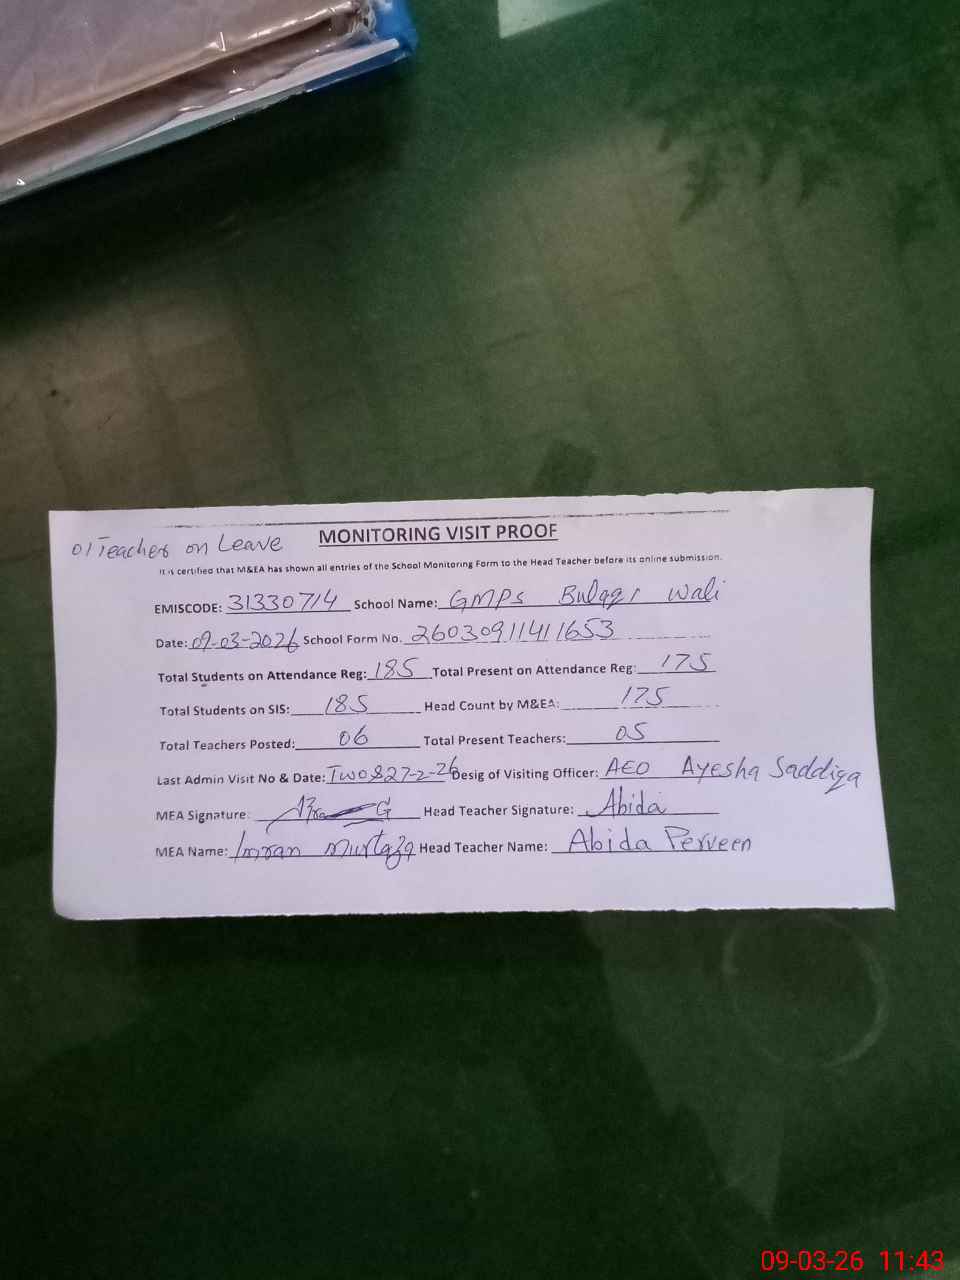 01 Teacher on Leave
MONITORING VISIT PROOF
It is certified that M&EA has shown all entries of the School Monitoring Form to the Head Teacher before its online submission.
EMISCODE: 31330714 School Name: GMPS Bulaqi Wali
Date: 09-03-2026 School Form No. 26030911411653
Total Students on Attendance Reg: 185 Total Present on Attendance Reg: 175
Total Students on SIS: 185 Head Count by M&EA: 175
Total Teachers Posted: 06 Total Present Teachers: 05
Last Admin Visit No & Date: Two & 27-2-26 Desig of Visiting Officer: AEO Ayesha Saddiqa
MEA Signature: Head Teacher Signature: Abida
MEA Name: Imran Murtaza Head Teacher Name: Abida Perveen
09-03-26 11:43